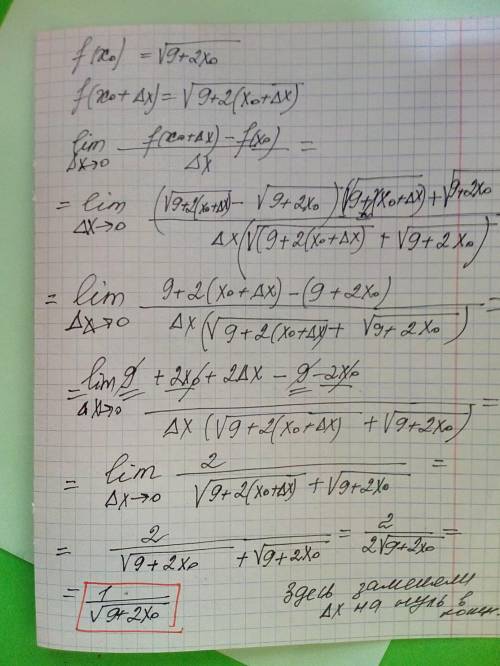 f(x₀) = √(9+2x₀)
f(x₀+Δx) = √(9+2(x₀+Δx))
lim Δx→0 (f(x₀+Δx) - f(x₀)) / Δx =
= lim Δx→0 (√(9+2(x₀+Δx)) - √(9+2x₀))(√(9+2(x₀+Δx)) + √(9+2x₀)) / Δx(√(9+2(x₀+Δx)) + √(9+2x₀))
= lim Δx→0 (9+2(x₀+Δx) - (9+2x₀)) / Δx(√(9+2(x₀+Δx)) + √(9+2x₀)) =
= lim Δx→0 (9 + 2x₀ + 2Δx - 9 - 2x₀) / Δx(√(9+2(x₀+Δx)) + √(9+2x₀)) =
= lim Δx→0 2 / (√(9+2(x₀+Δx)) + √(9+2x₀)) =
= 2 / (√(9+2x₀) + √(9+2x₀)) = 2 / 2√(9+2x₀) =
= 1 / √(9+2x₀)
Здесь заменили
Δx на нуль в